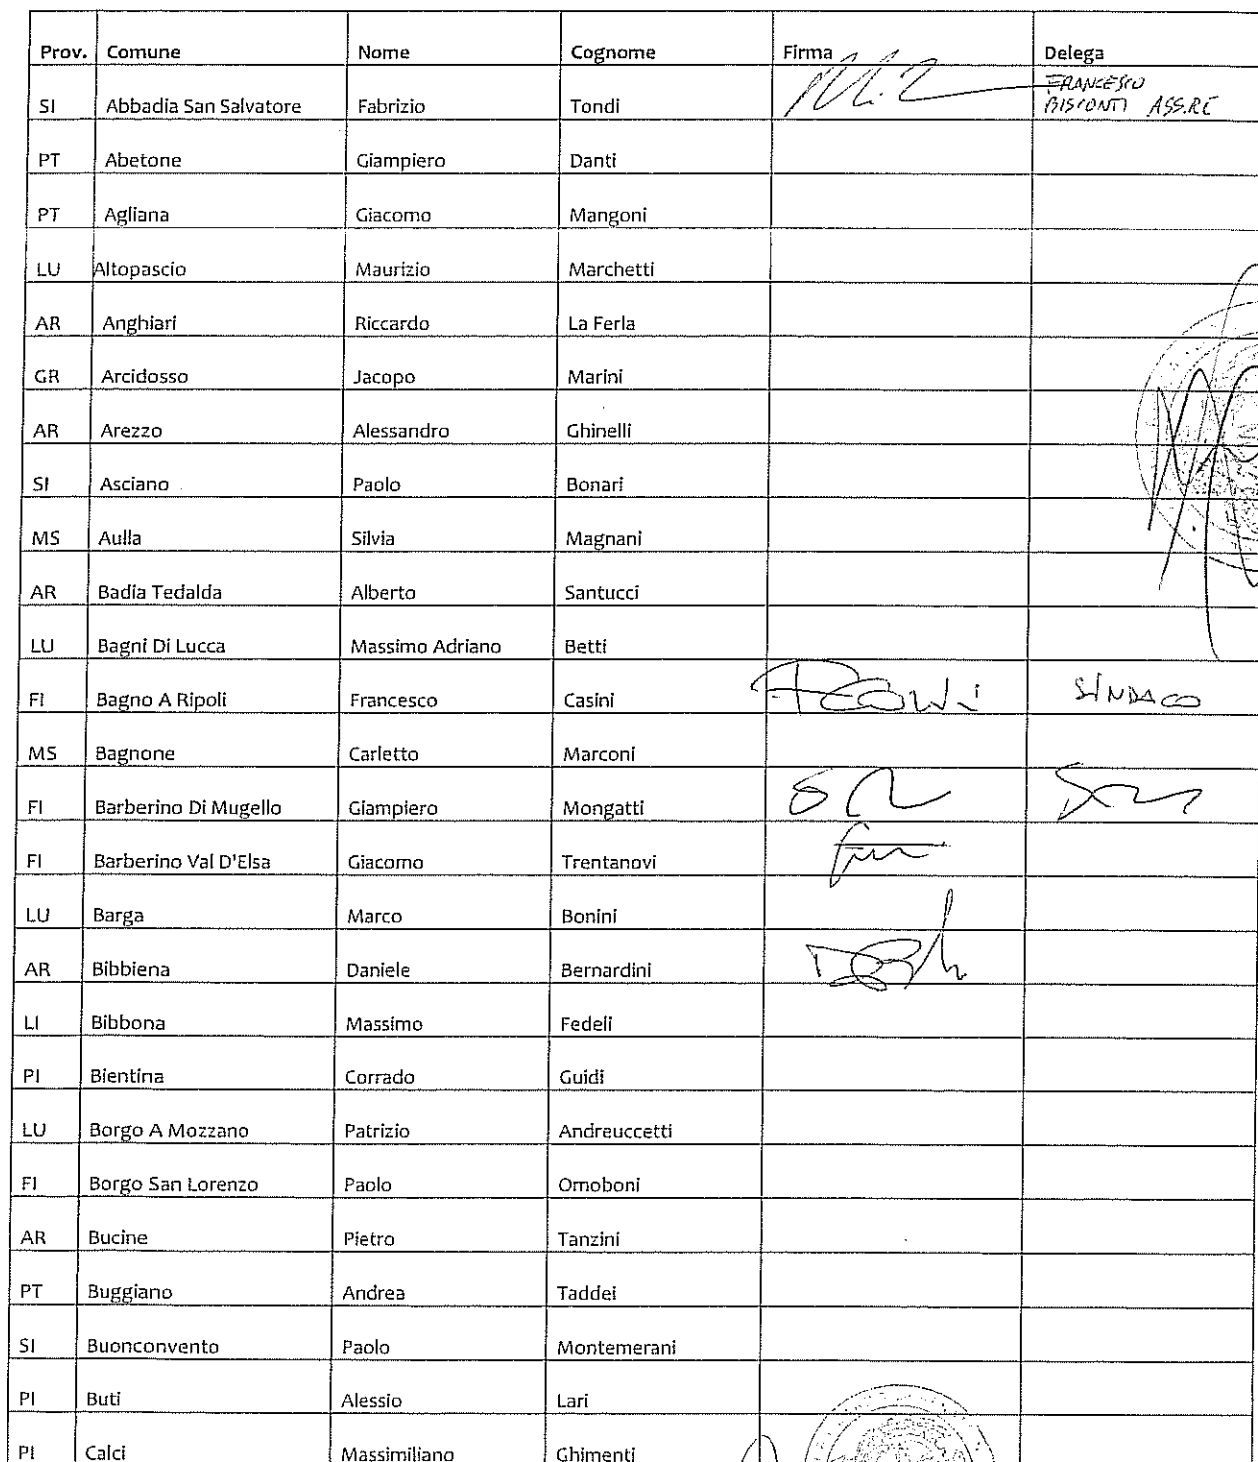 Prov. Comune Nome Cognome Firma Delega
SI Abbadia San Salvatore Fabrizio Tondi FRANCESCO
BISCONTI ASS.RE
PT Abetone Giampiero Danti
PT Agliana Giacomo Mangoni
LU Altopascio Maurizio Marchetti
AR Anghiari Riccardo La Ferla
GR Arcidosso Jacopo Marini
AR Arezzo Alessandro Ghinelli
SI Asciano Paolo Bonari
MS Aulla Silvia Magnani
AR Badia Tedalda Alberto Santucci
LU Bagni Di Lucca Massimo Adriano Betti
FI Bagno A Ripoli Francesco Casini SINDACO
MS Bagnone Carletto Marconi
FI Barberino Di Mugello Giampiero Mongatti
FI Barberino Val D'Elsa Giacomo Trentanovi
LU Barga Marco Bonini
AR Bibbiena Daniele Bernardini
LI Bibbona Massimo Fedeli
PI Bientina Corrado Guidi
LU Borgo A Mozzano Patrizio Andreuccetti
FI Borgo San Lorenzo Paolo Omoboni
AR Bucine Pietro Tanzini
PT Buggiano Andrea Taddei
SI Buonconvento Paolo Montemerani
PI Buti Alessio Lari
PI Calci Massimiliano Ghimenti